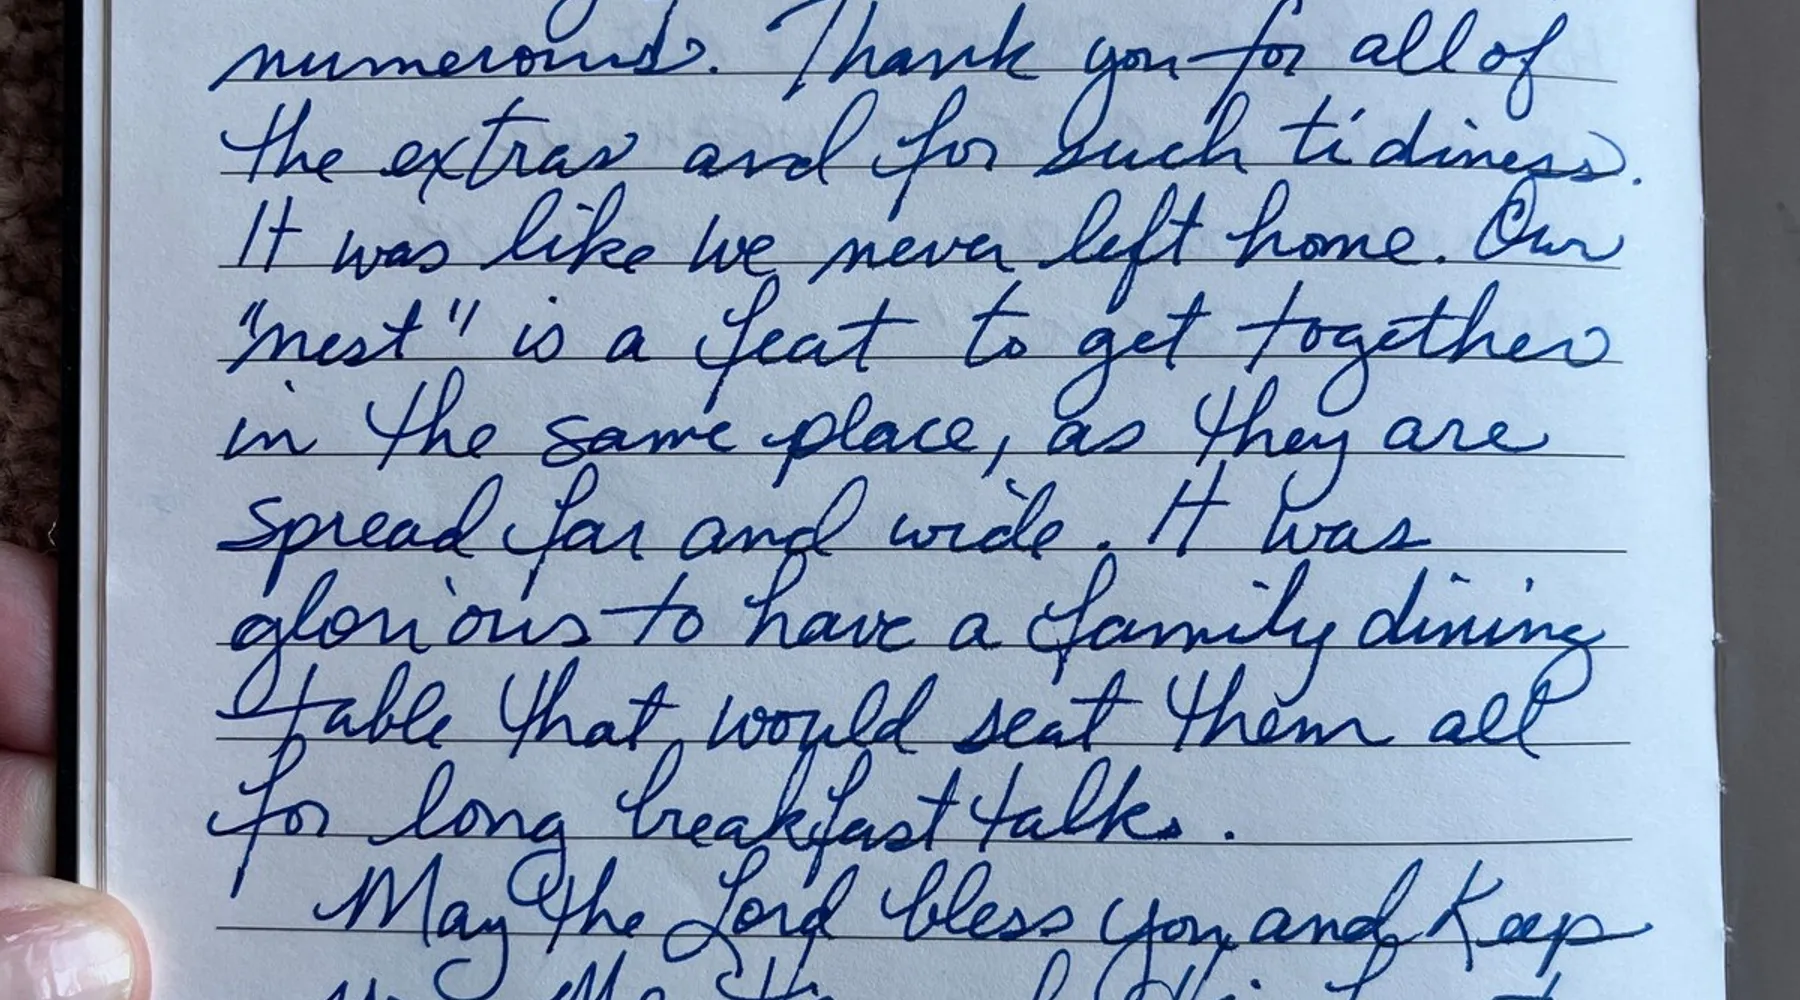 numerous. Thank you for all of
the extras and for such tidiness.
It was like we never left home. Our
"nest" is a feat to get together
in the same place, as they are
spread far and wide. It was
glorious to have a family dining
table that would seat them all
for long breakfast talks.
May the Lord bless you and Keep